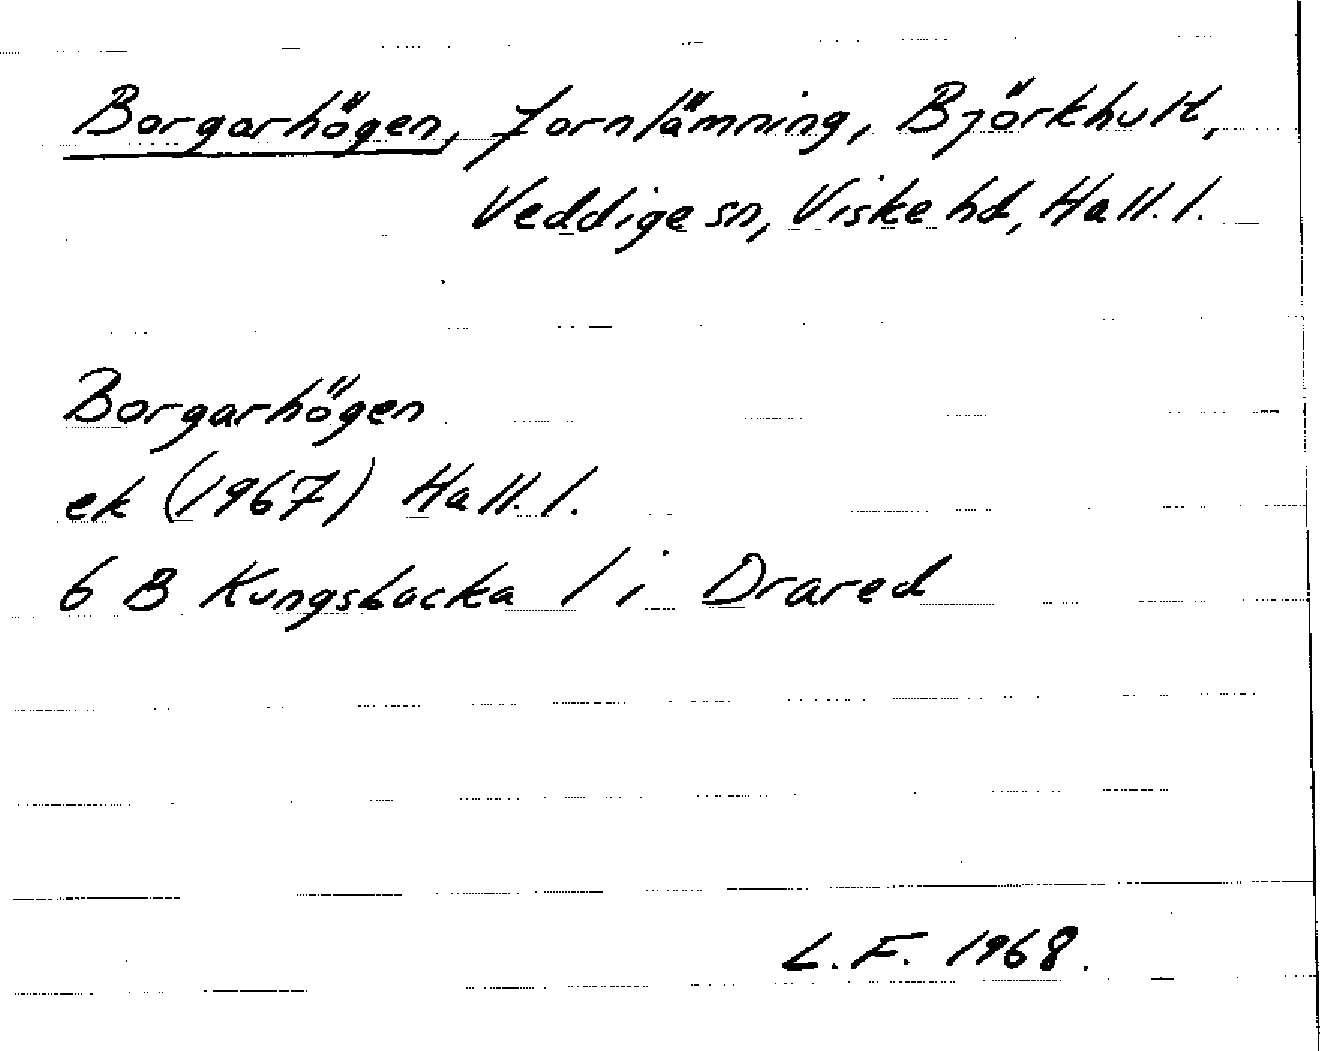 Borgarhögen, fornlämning, Björkhult,
Veddige sn, Viske hd, Hall. l.
Borgarhögen
ek (1967) Hall. l.
6 B Kungsbacka l i Drared
L. F. 1968.